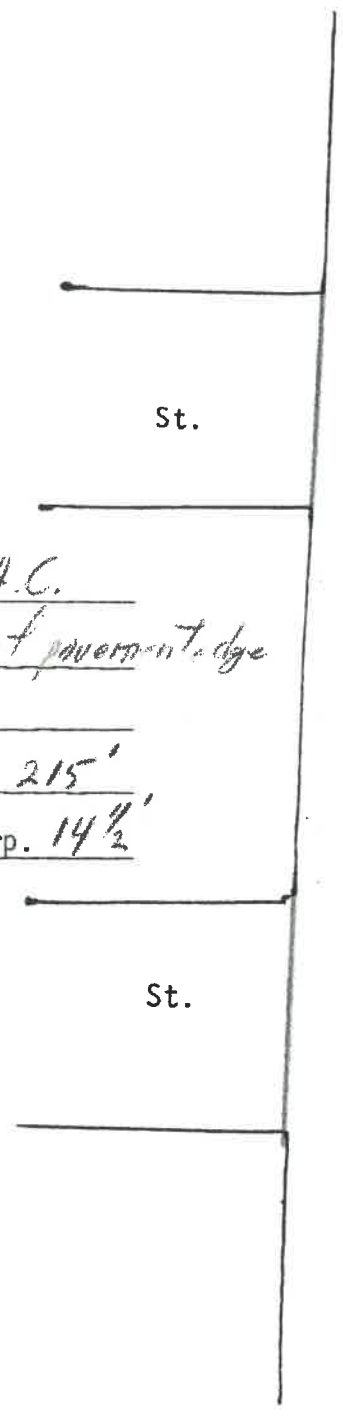 St.
A.C.
f pavement edge
215'
p. 14 1/2'
St.